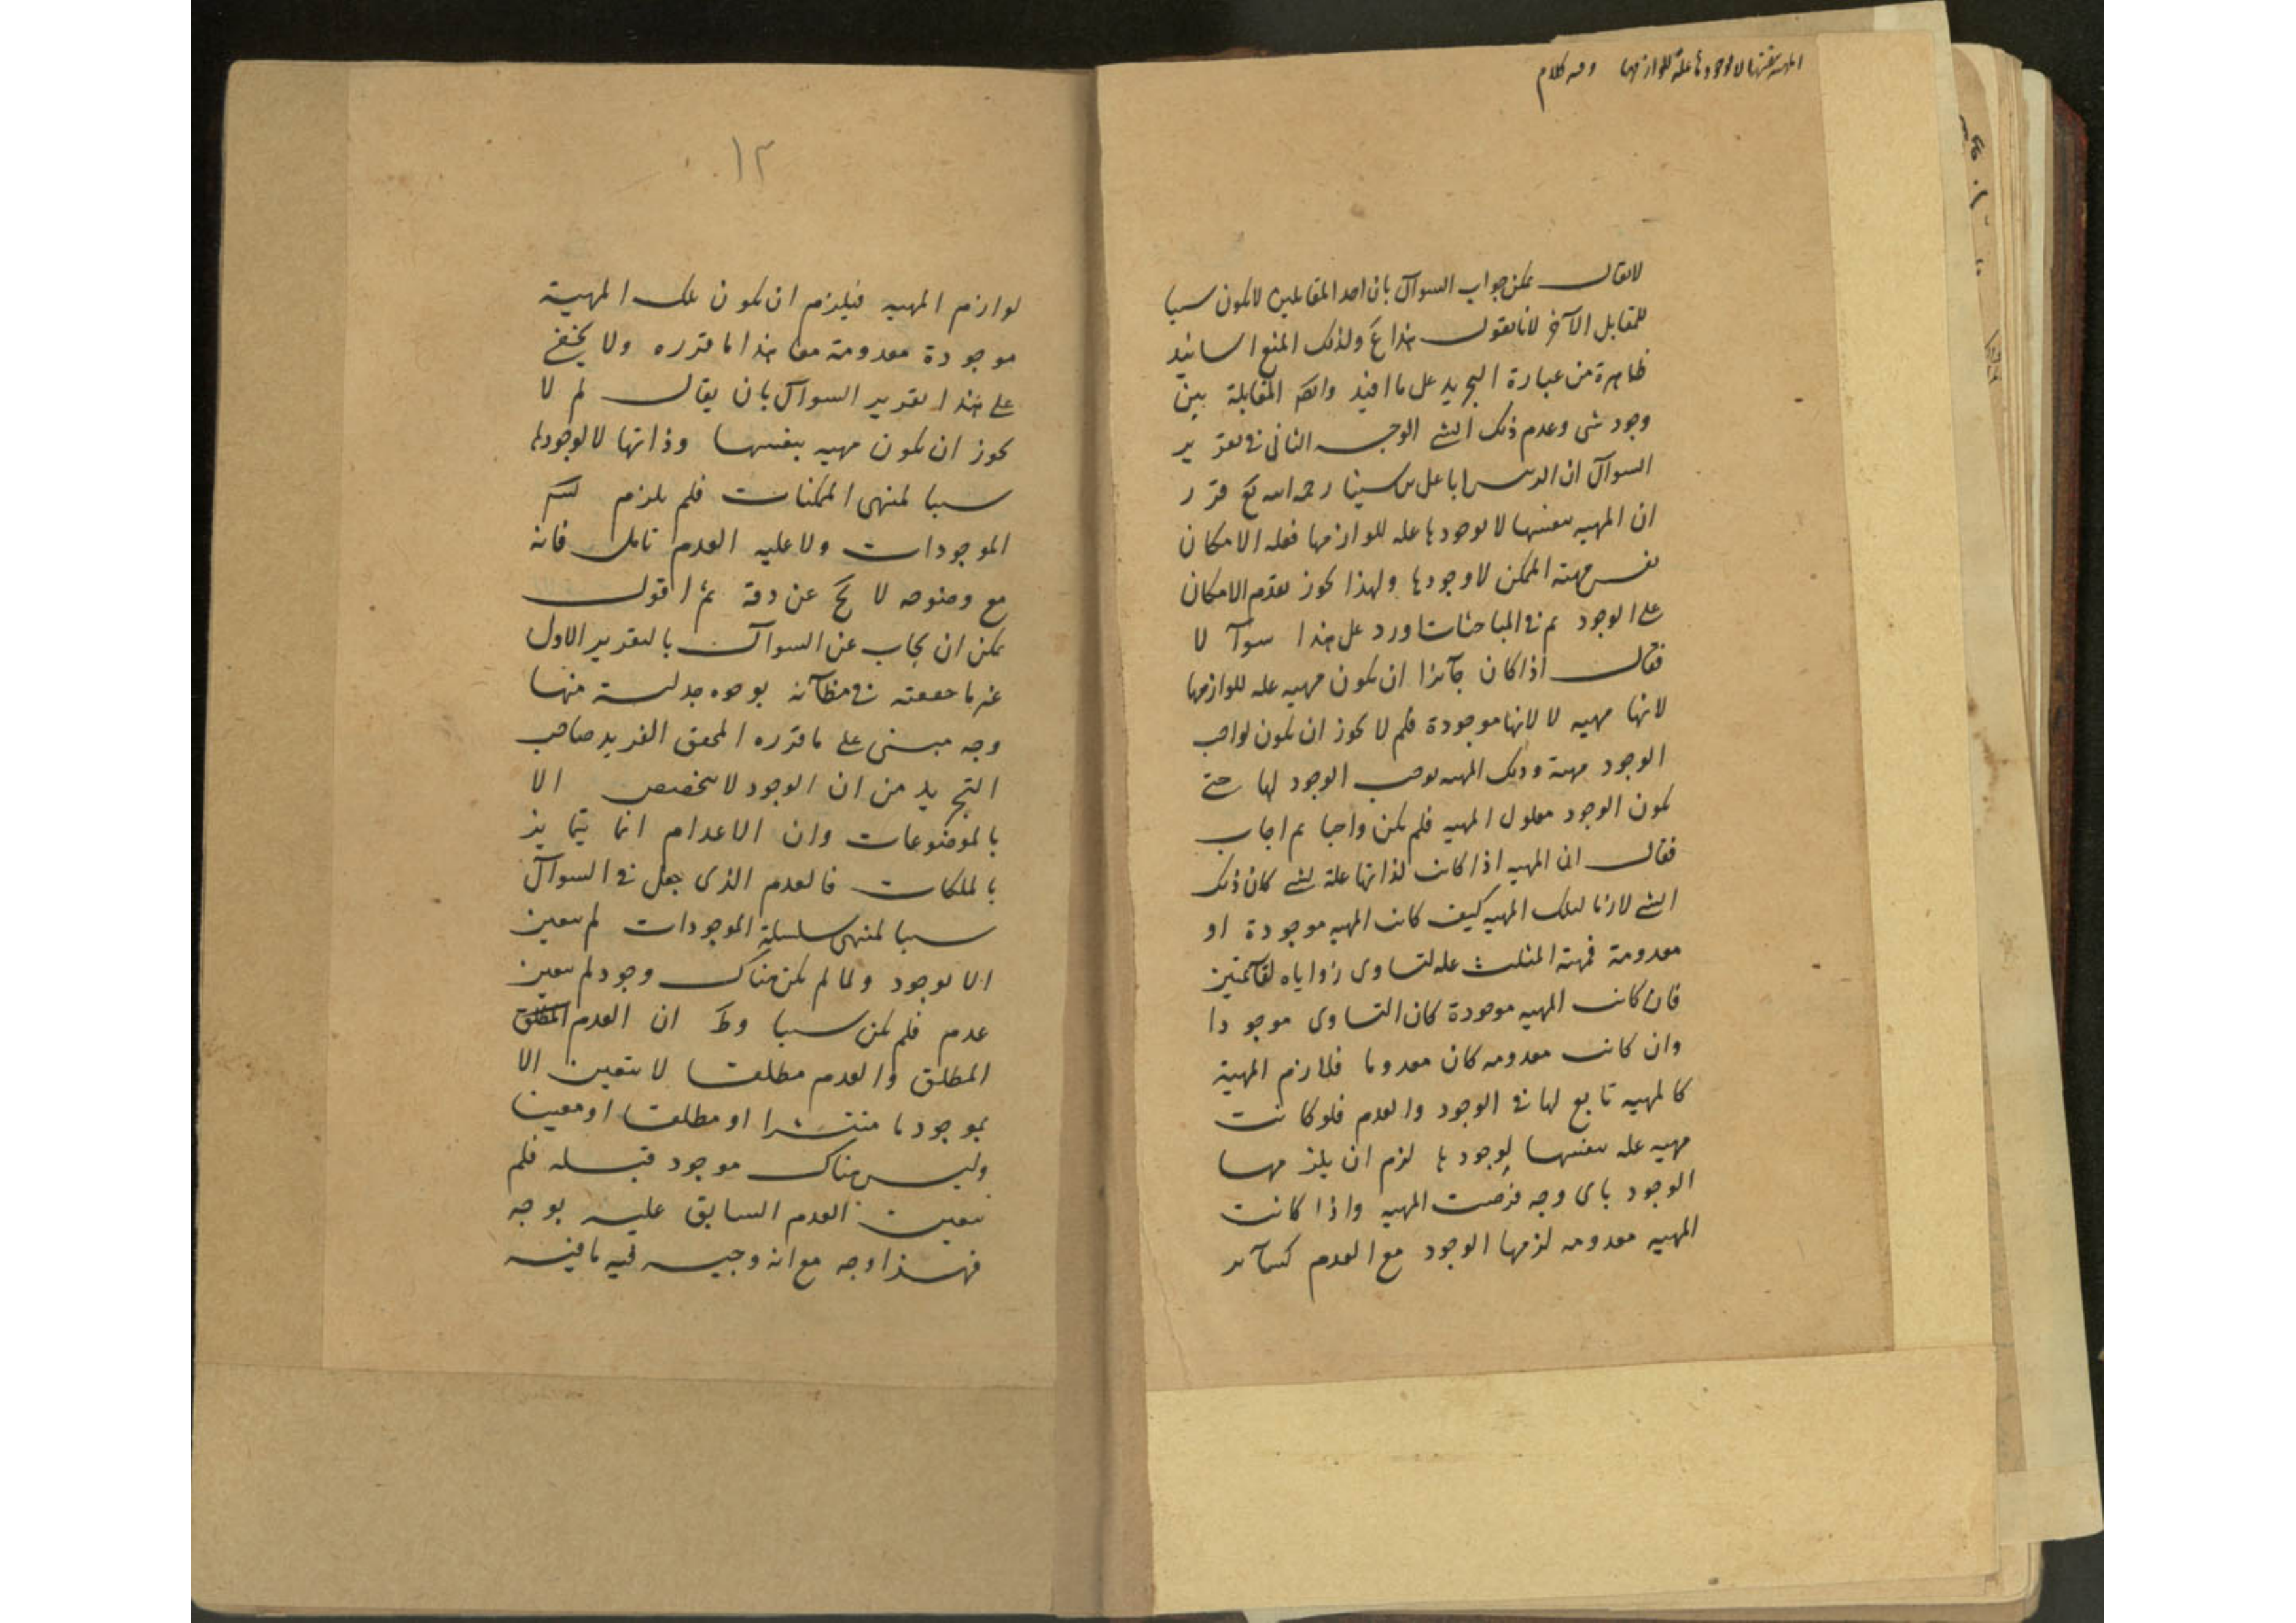 المهية بنفسها لا لوجودها علة للوازمها وفيه كلام
لا يقال يمكن جواب السوآل بان احد المتقابلين لا يكون سببا
للمقابل الآخر لانا نقول هذا ع ولذلك المنع اسانيد
ظاهرة من عبارة التجريد على ما افيد وايضا المقابلة بين
وجود شى وعدم ذلك الشے الوجه الثانى فے تقرير
السوآل ان الرئيس ابا على بن سينا رحمه الله تع قرر
ان المهيه بنفسها لا لوجودها عله للوازمها فعله الامكان
نفس مهية الممكن لا وجودها ولهذا يجوز تقدم الامكان
على الوجود ثم فے المباحثات اورد على هذا سوآلا
فقال اذا كان جآئزا ان يكون مهيه عله للوازمها
لانها مهيه لا لانها موجودة فلم لا يجوز ان يكون لواجب
الوجود مهية وتلك المهيه توجب الوجود لها حتے
يكون الوجود معلول المهيه فلم يكن واجبا ثم اجاب
فقال ان المهيه اذا كانت لذاتها علة لشے كان ذلك
الشے لازما لتلك المهيه كيف كانت المهيه موجودة او
معدومة فمهية المثلث عله لتساوى زواياه لقآئمتين
فان كانت المهيه موجودة كان التساوى موجودا
وان كانت معدومه كان معدوما فلازم المهية
كالمهيه تابع لها فے الوجود والعدم فلو كانت
مهيه عله بنفسها لوجودها لزم ان يلزمها
الوجود باى وجه فرضت المهيه واذا كانت
المهيه معدومه لزمها الوجود مع العدم كسآئر
١٢
لوازم المهيه فيلزم ان يكون تلك المهية
موجودة معدومة معا هذا ما قرره ولا يخفے
على هذا تقرير السوآل بان يقال لم لا
يجوز ان يكون مهيه بنفسها وذاتها لا لوجودها
سببا لمنتهى الممكنات فلم يلزم
الموجودات ولا علية العدم تامل فانه
مع وضوحه لا يخ عن دقة ثم اقول
يمكن ان يجاب عن السوآل بالتقرير الاول
غير ما حققته فے مظآنه بوجوه جدلية منها
وجه مبنى على ما قرره المحقق الفريد صاحب
التجريد من ان الوجود لا يتخصص الا
بالموضوعات وان الاعدام انما يتمايز
بالملكات فالعدم الذى جعل فے السوآل
سببا لمنتهى سلسلة الموجودات لم يتعين
الا بوجود ولما لم يكن هناك وجود لم يتعين
عدم فلم يكن سببا وظ ان العدم المطلق
المطلق والعدم مطلقا لا يتعين الا
بموجود ما منتشرا او مطلقا او معينا
وليس هناك موجود قبله فلم
يتعين العدم السابق عليه بوجه
فهذا وجه مع انه وجيه فيه ما فيه